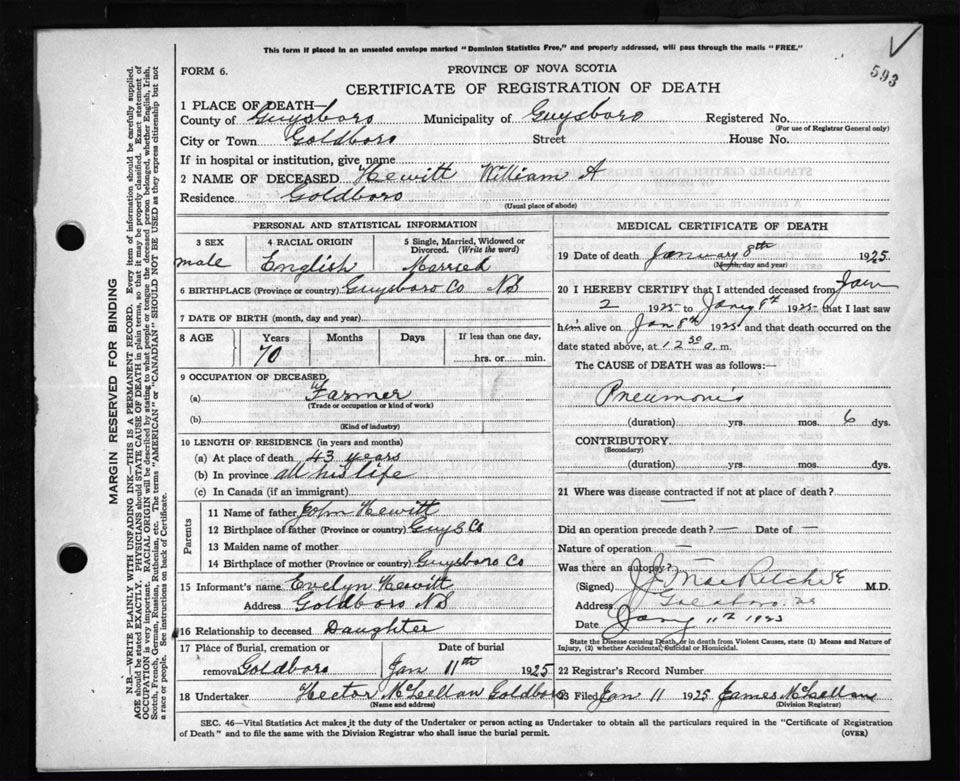 This form if placed in an unsealed envelope marked "Dominion Statistics Free," and properly addressed, will pass through the mails "FREE."
593
FORM 6.
PROVINCE OF NOVA SCOTIA
CERTIFICATE OF REGISTRATION OF DEATH
1 PLACE OF DEATH—
County of Guysboro Municipality of Guysboro Registered No.
(For use of Registrar General only)
City or Town Goldboro Street House No.
If in hospital or institution, give name
2 NAME OF DECEASED Hewitt William A
Residence Goldboro
(Usual place of abode)
PERSONAL AND STATISTICAL INFORMATION
3 SEX 4 RACIAL ORIGIN 5 Single, Married, Widowed or Divorced. (Write the word)
male English Married
6 BIRTHPLACE (Province or country) Guysboro Co NS
7 DATE OF BIRTH (month, day and year)
8 AGE Years Months Days If less than one day,
70 hrs. or min.
9 OCCUPATION OF DECEASED
(a) Farmer
(Trade or occupation or kind of work)
(b)
(Kind of industry)
10 LENGTH OF RESIDENCE (in years and months)
(a) At place of death 43 years
(b) In province all his life
(c) In Canada (if an immigrant)
Parents
11 Name of father John Hewitt
12 Birthplace of father (Province or country) Guys Co
13 Maiden name of mother
14 Birthplace of mother (Province or country) Guysboro Co
15 Informant's name Evelyn Hewitt
Address Goldboro NS
16 Relationship to deceased Daughter
17 Place of Burial, cremation or Date of burial
removal Goldboro Jan 11th 1925
18 Undertaker Hector McLellan Goldboro
(Name and address)
MEDICAL CERTIFICATE OF DEATH
19 Date of death January 8th 1925
(Month, day and year)
20 I HEREBY CERTIFY that I attended deceased from Jan
2 1925 to Jany 8th 1925 that I last saw
him alive on Jan 8th 1925 and that death occurred on
date stated above, at 12 30 a. m.
The CAUSE of DEATH was as follows:—
Pneumonia
(duration) yrs. mos. 6 dys.
CONTRIBUTORY
(Secondary)
(duration) yrs. mos. dys.
21 Where was disease contracted if not at place of death?
Did an operation precede death? — Date of —
Nature of operation —
Was there an autopsy?
(Signed) J. MacRitchie M.D.
Address
Date Jany 11th 1925
State the Disease causing Death, or in death from Violent Causes, state (1) Means and Nature of
Injury, (2) whether Accidental, Suicidal or Homicidal.
22 Registrar's Record Number
23 Filed Jan 11 1925 James McLellan
(Division Registrar)
SEC. 46—Vital Statistics Act makes it the duty of the Undertaker or person acting as Undertaker to obtain all the particulars required in the "Certificate of Registration
of Death" and to file the same with the Division Registrar who shall issue the burial permit.
(OVER)
MARGIN RESERVED FOR BINDING
N.B.—WRITE PLAINLY WITH UNFADING INK—THIS IS A PERMANENT RECORD. Every item of information should be carefully supplied.
AGE should be stated EXACTLY. PHYSICIANS should STATE CAUSE OF DEATH in plain terms, so that it may be properly classified. Exact statement of
OCCUPATION is very important. RACIAL ORIGIN will be described by stating to what people or tongue the deceased person belonged, whether English, Irish,
Scotch, French, German, Russian, Ruthenian, etc. The terms "AMERICAN" or "CANADIAN" SHOULD NOT BE USED as they express citizenship but not
a race or people. See instructions on back of Certificate.